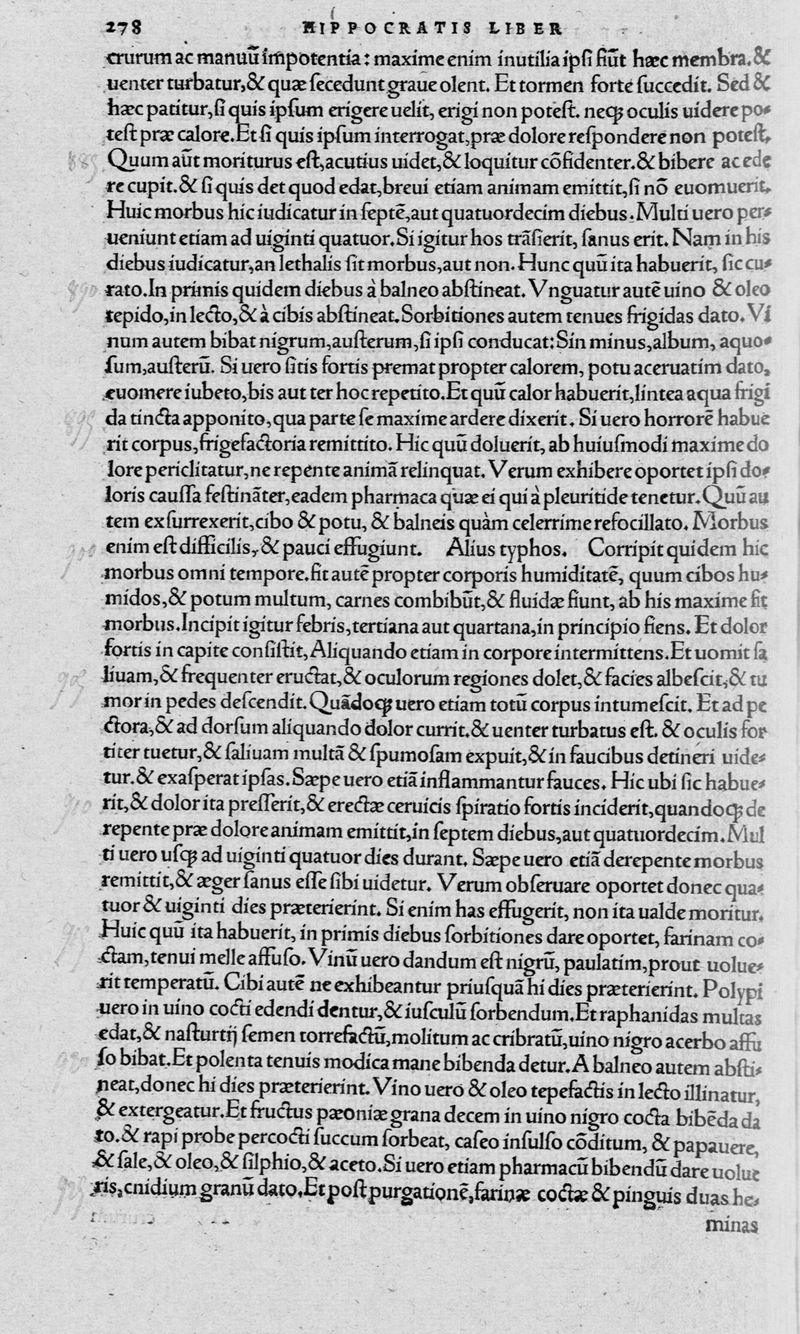 278 HIPPOCRATIS LIBER
crurum ac manuũ impotentia: maxime enim inutilia ipsi fiũt hæc membra. &
uenter turbatur, & quæ secedunt graue olent. Et tormen forte succedit. Sed &
hæc patitur, si quis ipsum erigere uelit, erigi non potest. neqʒ oculis uidere po⸗
test præ calore. Et si quis ipsum interrogat, præ dolore respondere non potest.
Quum aũt moriturus est, acutius uidet, & loquitur cõfidenter. & bibere ac ede
re cupit. & si quis det quod edat, breui etiam animam emittit, si nõ euomuerit.
Huic morbus hic iudicatur in septẽ, aut quatuordecim diebus. Multi uero per⸗
ueniunt etiam ad uiginti quatuor. Si igitur hos trãsierit, sanus erit. Nam in his
diebus iudicatur, an lethalis sit morbus, aut non. Hunc quũ ita habuerit, sic cu⸗
rato. In primis quidem diebus à balneo abstineat. Vnguatur autẽ uino & oleo
tepido, in lecto, & à cibis abstineat. Sorbitiones autem tenues frigidas dato. Vi
num autem bibat nigrum, austerum, si ipsi conducat: Sin minus, album, aquo⸗
sum, austerũ. Si uero sitis fortis premat propter calorem, potu aceruatim dato,
euomere iubeto, bis aut ter hoc repetito. Et quũ calor habuerit, lintea aqua frigi
da tincta apponito, qua parte se maxime ardere dixerit. Si uero horrorẽ habue
rit corpus, frigefactoria remittito. Hic quũ doluerit, ab huiusmodi maxime do
lore periclitatur, ne repente animã relinquat. Verum exhibere oportet ipsi do⸗
loris caussa festinãter, eadem pharmaca quæ ei qui à pleuritide tenetur. Quũ au
tem exsurrexerit, cibo & potu, & balneis quàm celerrime refocillato. Morbus
enim est difficilis, & pauci effugiunt. Alius typhos. Corripit quidem hic
morbus omni tempore. fit autẽ propter corporis humiditatẽ, quum cibos hu⸗
midos, & potum multum, carnes combibũt, & fluidæ fiunt, ab his maxime fit
morbus. Incipit igitur febris, tertiana aut quartana, in principio fiens. Et dolor
fortis in capite consistit, Aliquando etiam in corpore intermittens. Et uomit sa
liuam, & frequenter eructat, & oculorum regiones dolet, & facies albescit, & tu
mor in pedes descendit. Quãdoqʒ uero etiam totũ corpus intumescit. Et ad pe
ctora, & ad dorsum aliquando dolor currit. & uenter turbatus est. & oculis for
titer tuetur, & saliuam multã & spumosam expuit, & in faucibus detineri uide⸗
tur. & exasperat ipsas. Sæpe uero etiã inflammantur fauces. Hic ubi sic habue⸗
rit, & dolor ita presserit, & erectæ ceruicis spiratio fortis inciderit, quandoqʒ de
repente præ dolore animam emittit, in septem diebus, aut quatuordecim. Mul
ti uero usqʒ ad uiginti quatuor dies durant. Sæpe uero etiã derepente morbus
remittit, & æger sanus esse sibi uidetur. Verum obseruare oportet donec qua⸗
tuor & uiginti dies præterierint. Si enim has effugerit, non ita ualde moritur.
Huic quũ ita habuerit, in primis diebus sorbitiones dare oportet, farinam co⸗
ctam, tenui melle affuso. Vinũ uero dandum est nigrũ, paulatim, prout uolue⸗
rit temperatũ. Cibi autẽ ne exhibeantur priusquã hi dies præterierint. Polypi
uero in uino cocti edendi dentur, & iusculũ sorbendum. Et raphanidas multas
edat, & nasturtij semen torrefactũ, molitum ac cribratũ, uino nigro acerbo affu
so bibat. Et polenta tenuis modica mane bibenda detur. A balneo autem absti⸗
neat, donec hi dies præterierint. Vino uero & oleo tepefactis in lecto illinatur,
& extergeatur. Et fructus pæoniæ grana decem in uino nigro cocta bibẽda da
to. & rapi probe percocti succum sorbeat, caseo insulso cõditum, & papauere,
& sale, & oleo, & silphio, & aceto. Si uero etiam pharmacũ bibendũ dare uolue
ris, cnidium granũ dato. Et post purgationẽ, farinæ coctæ & pinguis duas he⸗
minas